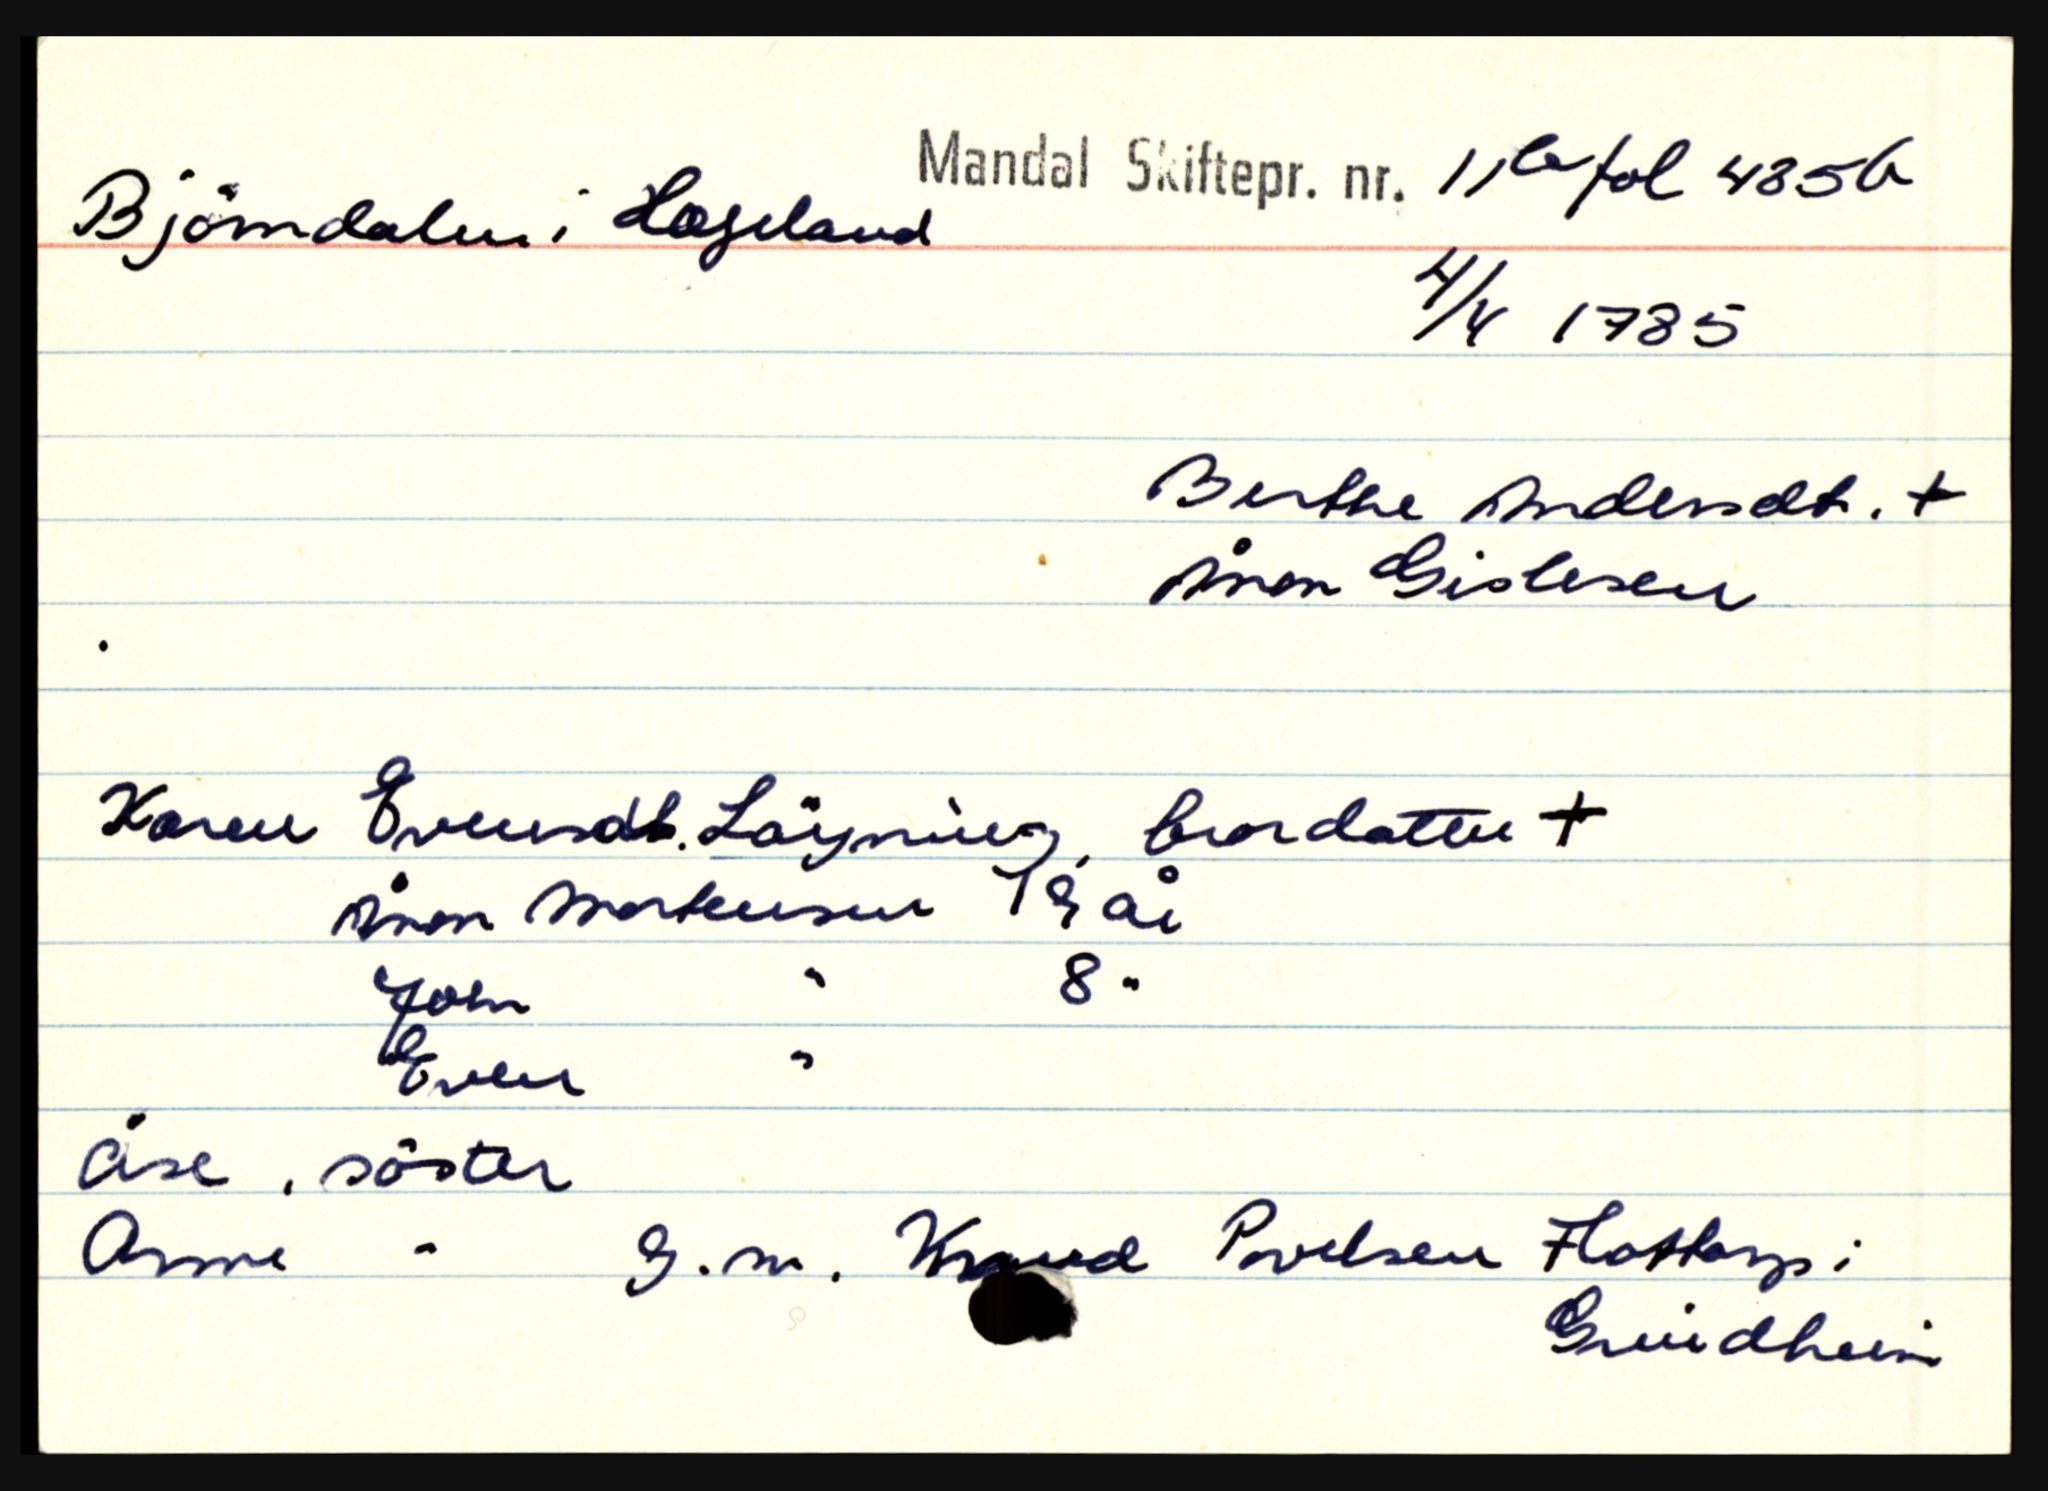 Mandal Skiftepr. nr. 11 b fol 485b
Björndalen i Hægeland
4/4 1785
Berthe Andersdt. +
Ånon Gislesen
Karen Evensdt. Löyning, brordatter +
Ånon Mortensen 19 år
John " 8 "
Even "
Åse, söster
Anne " g. m. Knud Povelsen Flottorp i
Grindheim